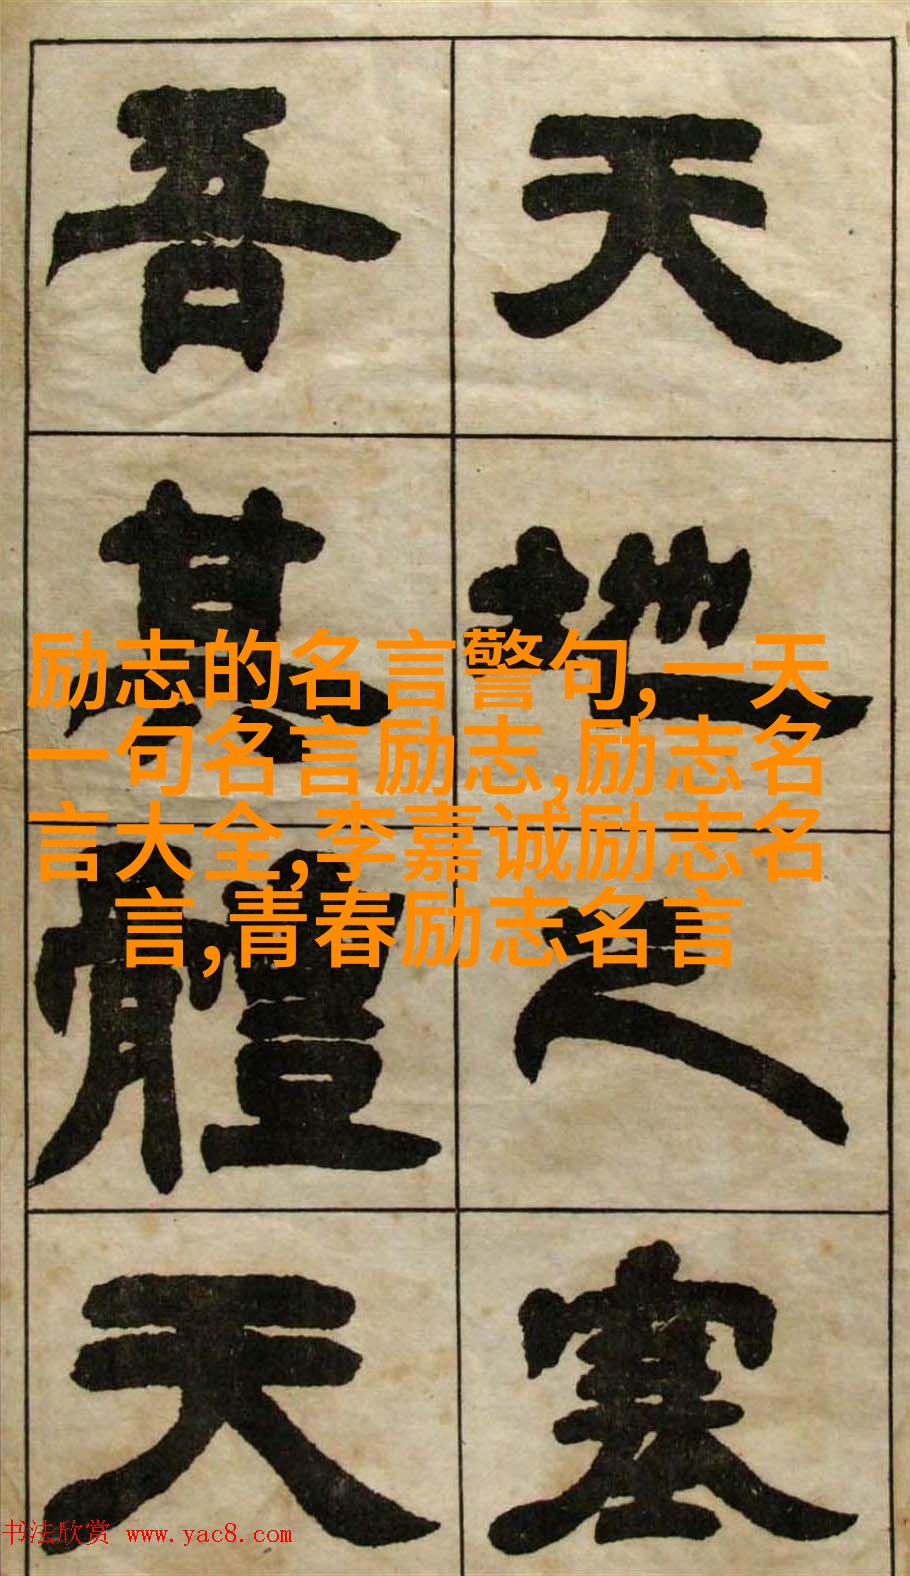 天地之塞
吾其體天
励志的名言警句,一天
一句名言励志,励志名
言大全,李嘉诚励志名
言,青春励志名言
书法欣赏 www.yac8.com